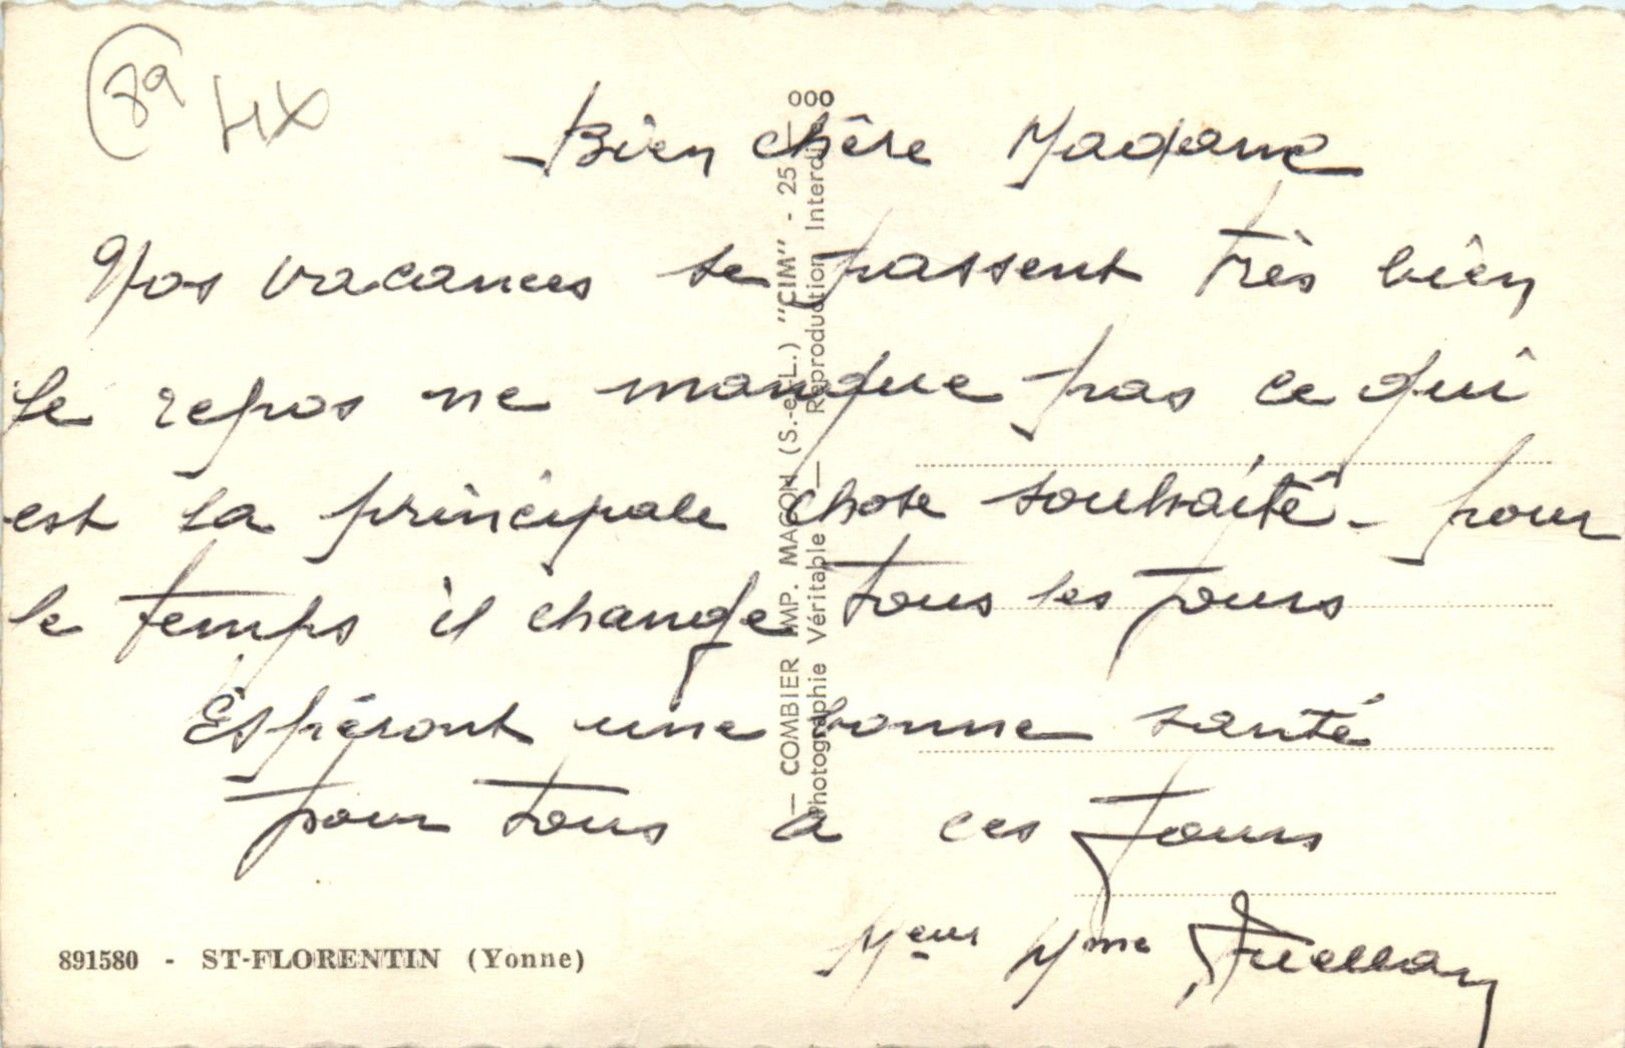 89
HX
Bien chère Madame
Nos vacances se passent très bien
le repos ne manque pas ce qui
est la principale chose souhaité - pour
le temps il change tous les jours
Espéront une bonne santé
pour tous a ces jours
Meur Mme
891580 - ST-FLORENTIN (Yonne)
— COMBIER IMP. MACON (S.-et-L.) "CIM" - 25
Photographie Véritable — Reproduction Interdite
000